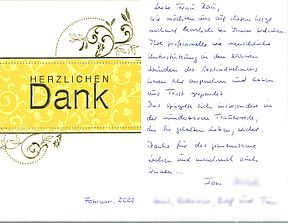 HERZLICHEN
Dank
Februar, 2020
Liebe Frau
wir möchten uns auf diesem Wege
nochmal herzlich bei Ihnen bedanken.
Ihre professionelle wie menschliche
Unterstützung in den schweren
Stunden des Abschiednehmens
waren sehr angenehm und haben
uns Trost gespendet.
Das spiegelte sich insbesondere in
der wundervollen Trauerrede,
die Sie gehalten haben, wider.
Danke für das gemeinsame
und manchmal auch
Fam.